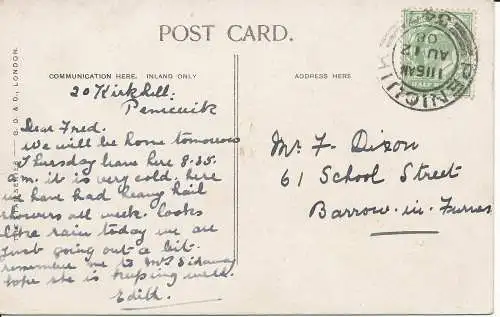 POST CARD.
COMMUNICATION HERE. INLAND ONLY
ADDRESS HERE
B. D. & D., LONDON.
PENICUIK
11 15AM
AU 12
08
20 Kirkhill.
Penicuik
Dear Fred.
We will be home tomorrow
Thursday leave here 8-35.
m. it is very cold. here
we have had heavy hail
showers all week. looks
like rain today we are
just going out a bit.
remember me to Mrs
hope she is keeping well.
Edith.
Mr. F. Dixon
61 School Street
Barrow-in-Furness